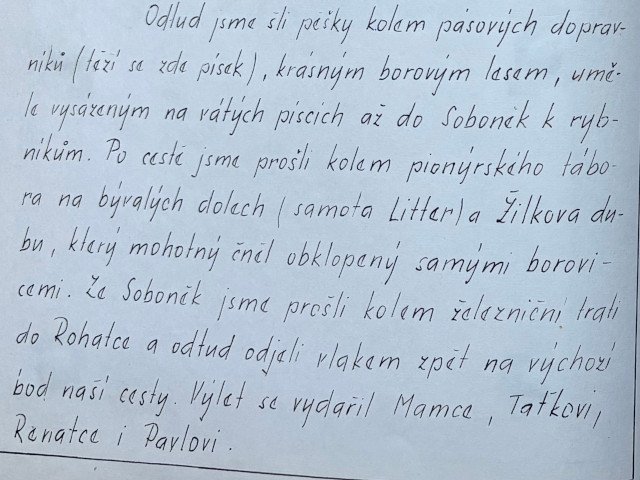 Odtud jsme šli pěšky kolem pásových doprav-
níků (těží se zde písek), krásným borovým lesem, umě-
le vysázeným na vátých píscích až do Soboněk k ryb-
níkům. Po cestě jsme prošli kolem pionýrského tábo-
ra na bývalých dolech (samota Litter) a Žilkova du-
bu, který mohutný čněl obklopený samými borovi-
cemi. Ze Soboněk jsme prošli kolem železniční trati
do Rohatce a odtud odjeli vlakem zpět na výchozí
bod naší cesty. Výlet se vydařil Mamce, Taťkovi,
Renatce i Pavlovi.